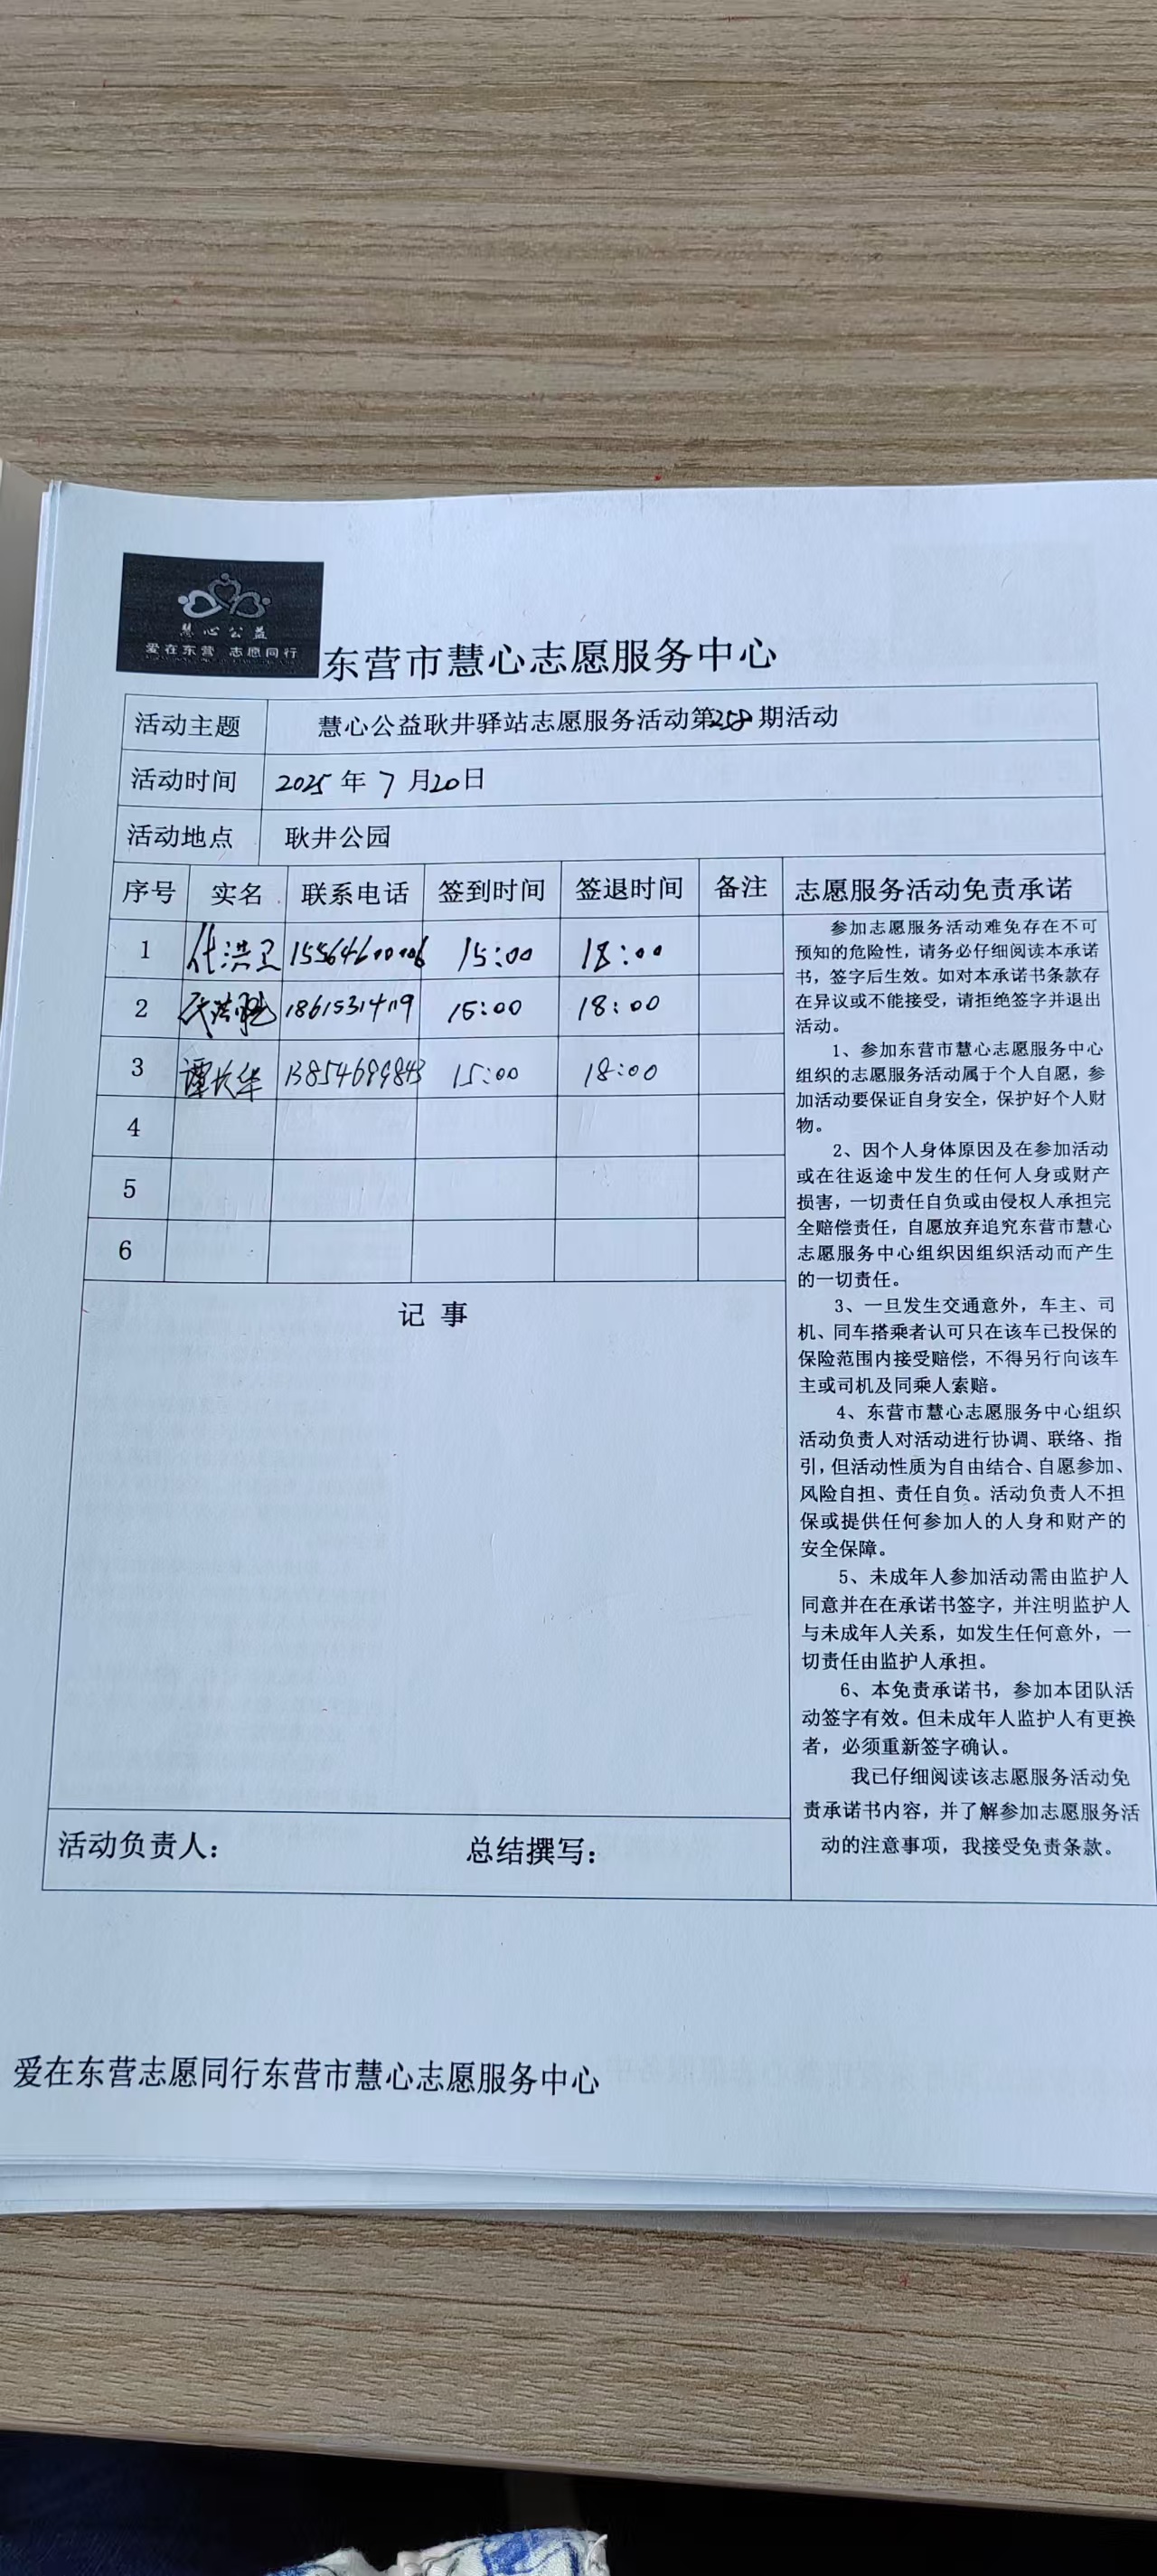 慧心公益
爱在东营 志愿同行
东营市慧心志愿服务中心
活动主题 慧心公益耿井驿站志愿服务活动第258期活动
活动时间 2025年7月20日
活动地点 耿井公园
序号 实名 联系电话 签到时间 签退时间 备注
1 15:00 18:00
2 15:00 18:00
3 谭长华 13854689843 15:00 18:00
4
5
6
记事
活动负责人: 总结撰写:
志愿服务活动免责承诺
参加志愿服务活动难免存在不可
预知的危险性，请务必仔细阅读本承诺
书，签字后生效。如对本承诺书条款存
在异议或不能接受，请拒绝签字并退出
活动。
1、参加东营市慧心志愿服务中心
组织的志愿服务活动属于个人自愿，参
加活动要保证自身安全，保护好个人财
物。
2、因个人身体原因及在参加活动
或在往返途中发生的任何人身或财产
损害，一切责任自负或由侵权人承担完
全赔偿责任，自愿放弃追究东营市慧心
志愿服务中心组织因组织活动而产生
的一切责任。
3、一旦发生交通意外，车主、司
机、同车搭乘者认可只在该车已投保的
保险范围内接受赔偿，不得另行向该车
主或司机及同乘人索赔。
4、东营市慧心志愿服务中心组织
活动负责人对活动进行协调、联络、指
引，但活动性质为自由结合、自愿参加、
风险自担、责任自负。活动负责人不担
保或提供任何参加人的人身和财产的
安全保障。
5、未成年人参加活动需由监护人
同意并在在承诺书签字，并注明监护人
与未成年人关系，如发生任何意外，一
切责任由监护人承担。
6、本免责承诺书，参加本团队活
动签字有效。但未成年人监护人有更换
者，必须重新签字确认。
我已仔细阅读该志愿服务活动免
责承诺书内容，并了解参加志愿服务活
动的注意事项，我接受免责条款。
爱在东营志愿同行东营市慧心志愿服务中心